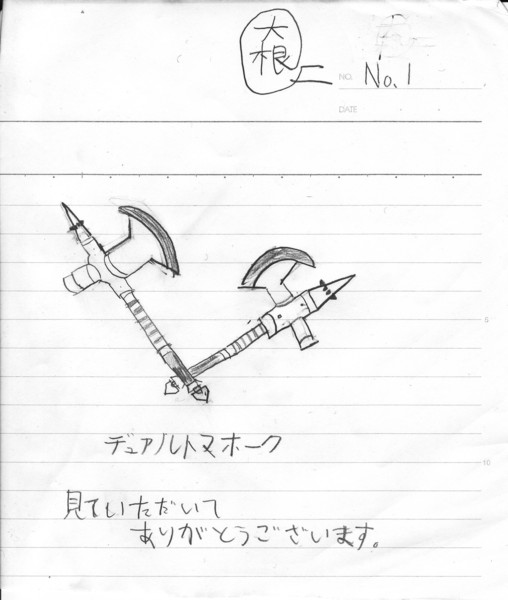 大根
二
NO. No.1
DATE
5
デュアルトマホーク
10
見ていただいて
ありがとうございます。